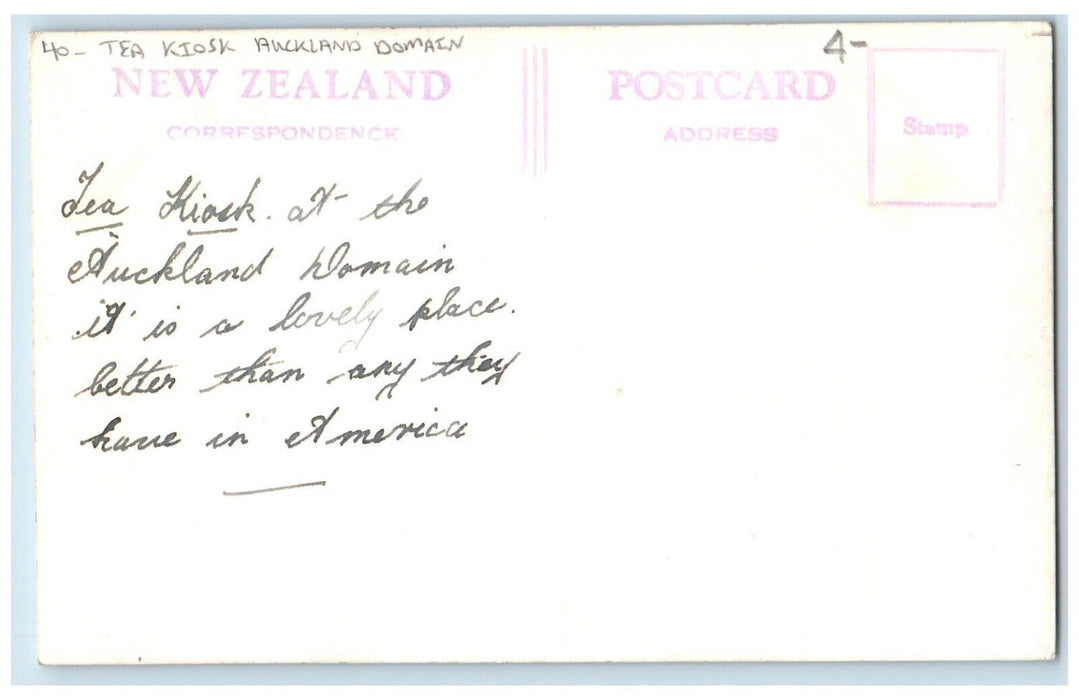 40- TEA KIOSK AUCKLAND DOMAIN
4-
NEW ZEALAND
POSTCARD
CORRESPONDENCE
ADDRESS
Stamp
Tea Kiosk. at the
Auckland Domain
it is a lovely place.
better than any they
have in America